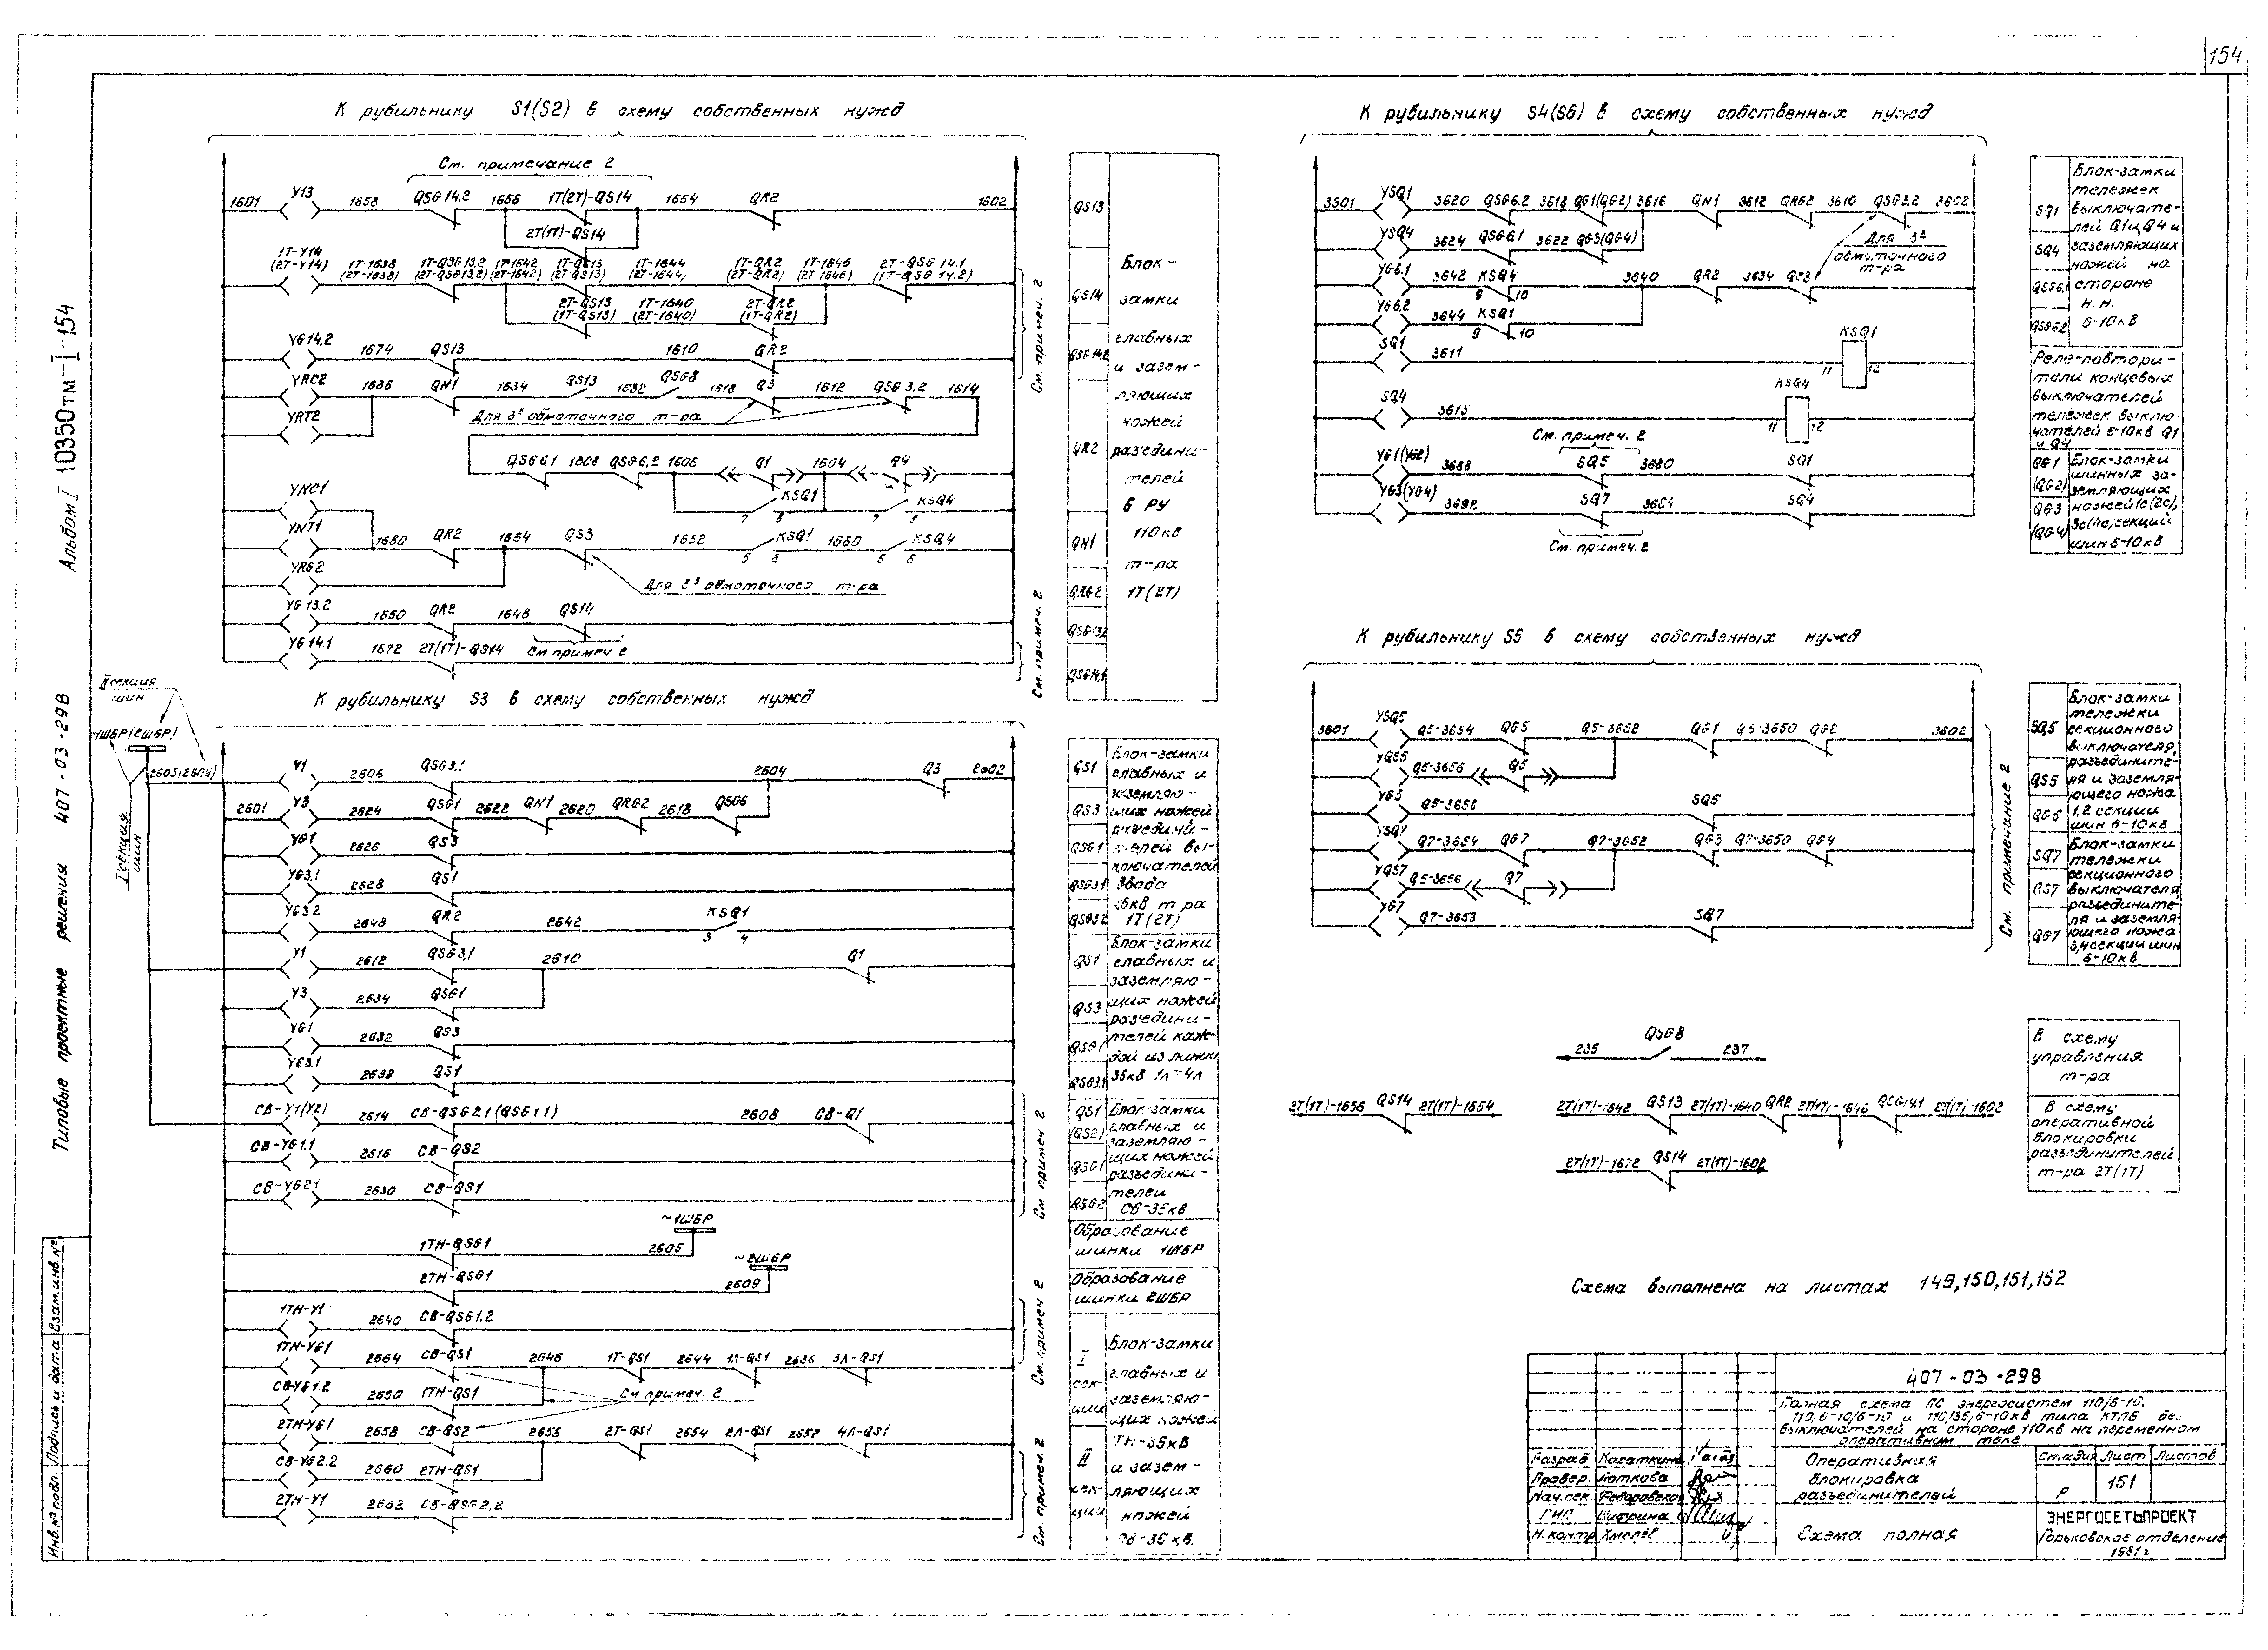 154
К рубильнику S1(S2) в схему собственных нужд
См. примечание 2
1601 Y13 1658 QSG14.2 1656 1T(2T)-QS14 1654 QR2 1602
2T(1T)-QS14
1T-Y14 1T-1638 1T-QSG13.2 1T-1642 1T-QS13 1T-1644 1T-QR2 1T-1646 2T-QSG14.1
(2T-Y14) (2T-1638) (2T-QSG13.2) (2T-1642) (2T-QS13) (2T-1644) (2T-QR2) (2T-1646) (1T-QSG14.2)
2T-QS13 1T-1640 2T-QR2
(1T-QS13) (2T-1640) (1T-QR2)
YG14.2 1674 QS13 1610 QR2
YRC2 1636 QN1 1634 QS13 1632 QSG8 1618 Q3 1612 QSG3.2 1614
YRT2
Для 3х обмоточного т-ра
QSG6.1 1608 QSG6.2 1606 Q1 1604 Q4
KSQ1 KSQ4
YNC1
YNT1 1680 QR2 1664 QS3 1662 KSQ1 1660 KSQ4
5 6 5 6
YRG2
Для 3х обмоточного т-ра
YG13.2 1650 QR2 1648 QS14
YG14.1 1672 2T(1T)-QS14 См примеч 2
См. примеч. 2
См. примеч. 2
QS13
QS14
QSG14.2
QR2
QN1
QRG2
QSG13.2
QSG14.1
Блок-
замки
главных
и зазем-
ляющих
ножей
разъедини-
телей
в РУ
110кв
т-ра
1Т(2Т)
К рубильнику S3 в схему собственных нужд
II секция
шин
~1ШБР(2ШБР)
2605(2609)
I секция
шин
Y1 2606 QSG3.1 2604 Q3 2602
2601 Y3 2624 QSG1 2622 QN1 2620 QRG2 2618 QSG6
YG1 2626 QS3
YG3.1 2628 QS1
YG3.2 2648 QR2 2642 KSQ1
3 4
Y1 2612 QSG3.1 2610 Q1
Y3 2634 QSG1
YG1 2632 QS3
YG3.1 2638 QS1
СВ-Y1(Y2) 2614 СВ-QSG2.1(QSG1.1) 2608 СВ-Q1
СВ-YG1.1 2616 СВ-QS2
СВ-YG2.1 2630 СВ-QS1
~1ШБР
1ТН-QSG1 2605
~2ШБР
2ТН-QSG1 2609
1ТН-Y1 2640 СВ-QSG1.2
1ТН-YG1 2664 СВ-QS1 2646 1Т-QS1 2644 1Л-QS1 2636 3Л-QS1
СВ-YG1.2 2650 1ТН-QS1 См примеч. 2
2ТН-YG1 2658 СВ-QS2 2656 2Т-QS1 2654 2Л-QS1 2652 4Л-QS1
СВ-YG2.2 2660 2ТН-QS1
2ТН-Y1 2662 СВ-QSG2.2
См примеч 2
См. примеч 2
См. примеч. 2
QS1
QS3
QSG1
QSG3.1
QSG3.2
Блок-замки
главных и
заземляю-
щих ножей
разъедини-
телей вы-
ключателей
ввода
35кв т-ра
1Т(2Т)
QS1
QS3
QSG1
QSG3.1
Блок-замки
главных и
заземляю-
щих ножей
разъедини-
телей каж-
дой из линий
35кв 1Л÷4Л
QS1
(QS2)
QSG1
QSG2
Блок-замки
главных и
заземляю-
щих ножей
разъедини-
телей
СВ-35кв
Образование
шинки 1ШБР
Образование
шинки 2ШБР
I
сек-
ции
II
сек-
ции
Блок-замки
главных и
заземляю-
щих ножей
ТН-35кВ
и зазем-
ляющих
ножей
СВ-35кв.
К рубильнику S4(S6) в схему собственных нужд
3601 YSQ1 3620 QSG6.2 3618 QG1(QG2) 3616 QN1 3612 QRG2 3610 QSG3.2 3602
YSQ4 3624 QSG6.1 3622 QG3(QG4)
Для 3х
обмоточного
т-ра
YG6.1 3642 KSQ4 3640 QR2 3634 QS3
9 10
YG6.2 3644 KSQ1
9 10
SQ1 3611 KSQ1
11 12
SQ4 3613 KSQ4
11 12
См. примеч. 2
YG1(YG2) 3688 SQ5 3680 SQ1
YG3(YG4) 3692 SQ7 3684 SQ4
См. примеч. 2
SQ1
SQ4
QSG6.1
QSG6.2
Блок-замки
тележек
выключате-
лей Q1 и Q4 и
заземляющих
ножей на
стороне
н.н.
6-10кв
Реле-повтори-
тели концевых
выключателей
тележек выклю-
чателей 6-10кв Q1
и Q4
QG1
(QG2)
QG3
(QG4)
Блок-замки
шинных за-
земляющих
ножей 1с(2с),
3с(4с) секций
шин 6-10кв
К рубильнику S5 в схему собственных нужд
3601 YSQ5 Q5-3654 QG5 Q5-3652 QG1 Q5-3650 QG2 3602
YQS5 Q5-3656 Q5
YG5 Q5-3658 SQ5
YSQ7 Q7-3654 QG7 Q7-3652 QG3 Q7-3650 QG4
YQS7 Q5-3656 Q7
YG7 Q7-3653 SQ7
См. примечание 2
SQ5
QS5
QG5
Блок-замки
тележки
секционного
выключателя,
разъедините-
ля и заземля-
ющего ножа
1,2 секции
шин 6-10кв
SQ7
QS7
QG7
Блок-замки
тележки
секционного
выключателя,
разъедините-
ля и заземля-
ющего ножа
3,4секции шин
6-10кв
235 QSG8 237
В схему
управления
т-ра
2T(1T)-1656 QS14 2T(1T)-1654
2T(1T)-1642 QS13 2T(1T)-1640 QR2 2T(1T)-1646 QSG14.1 2T(1T)-1602
2T(1T)-1672 QS14 2T(1T)-1602
В схему
оперативной
блокировки
разъединителей
т-ра 2Т(1Т)
Схема выполнена на листах 149,150,151,152
407-03-298
Полная схема ПС энергосистем 110/6-10,
110/6-10/6-10 и 110/35/6-10кВ типа КТПБ без
выключателей на стороне 110кв на переменном
оперативном токе
Разраб Касаткина
Провер.
Нач.сек.
ГИП Шифрина
Н.контр Хмелёв
Оперативная
блокировка
разъединителей
Схема полная
Стадия Лист Листов
Р 151
ЭНЕРГОСЕТЬПРОЕКТ
Горьковское отделение
1981г
Альбом I 10350тм-I-154
Типовые проектные решения 407-03-298
Инв.№подл. Подпись и дата Взам.инв.№